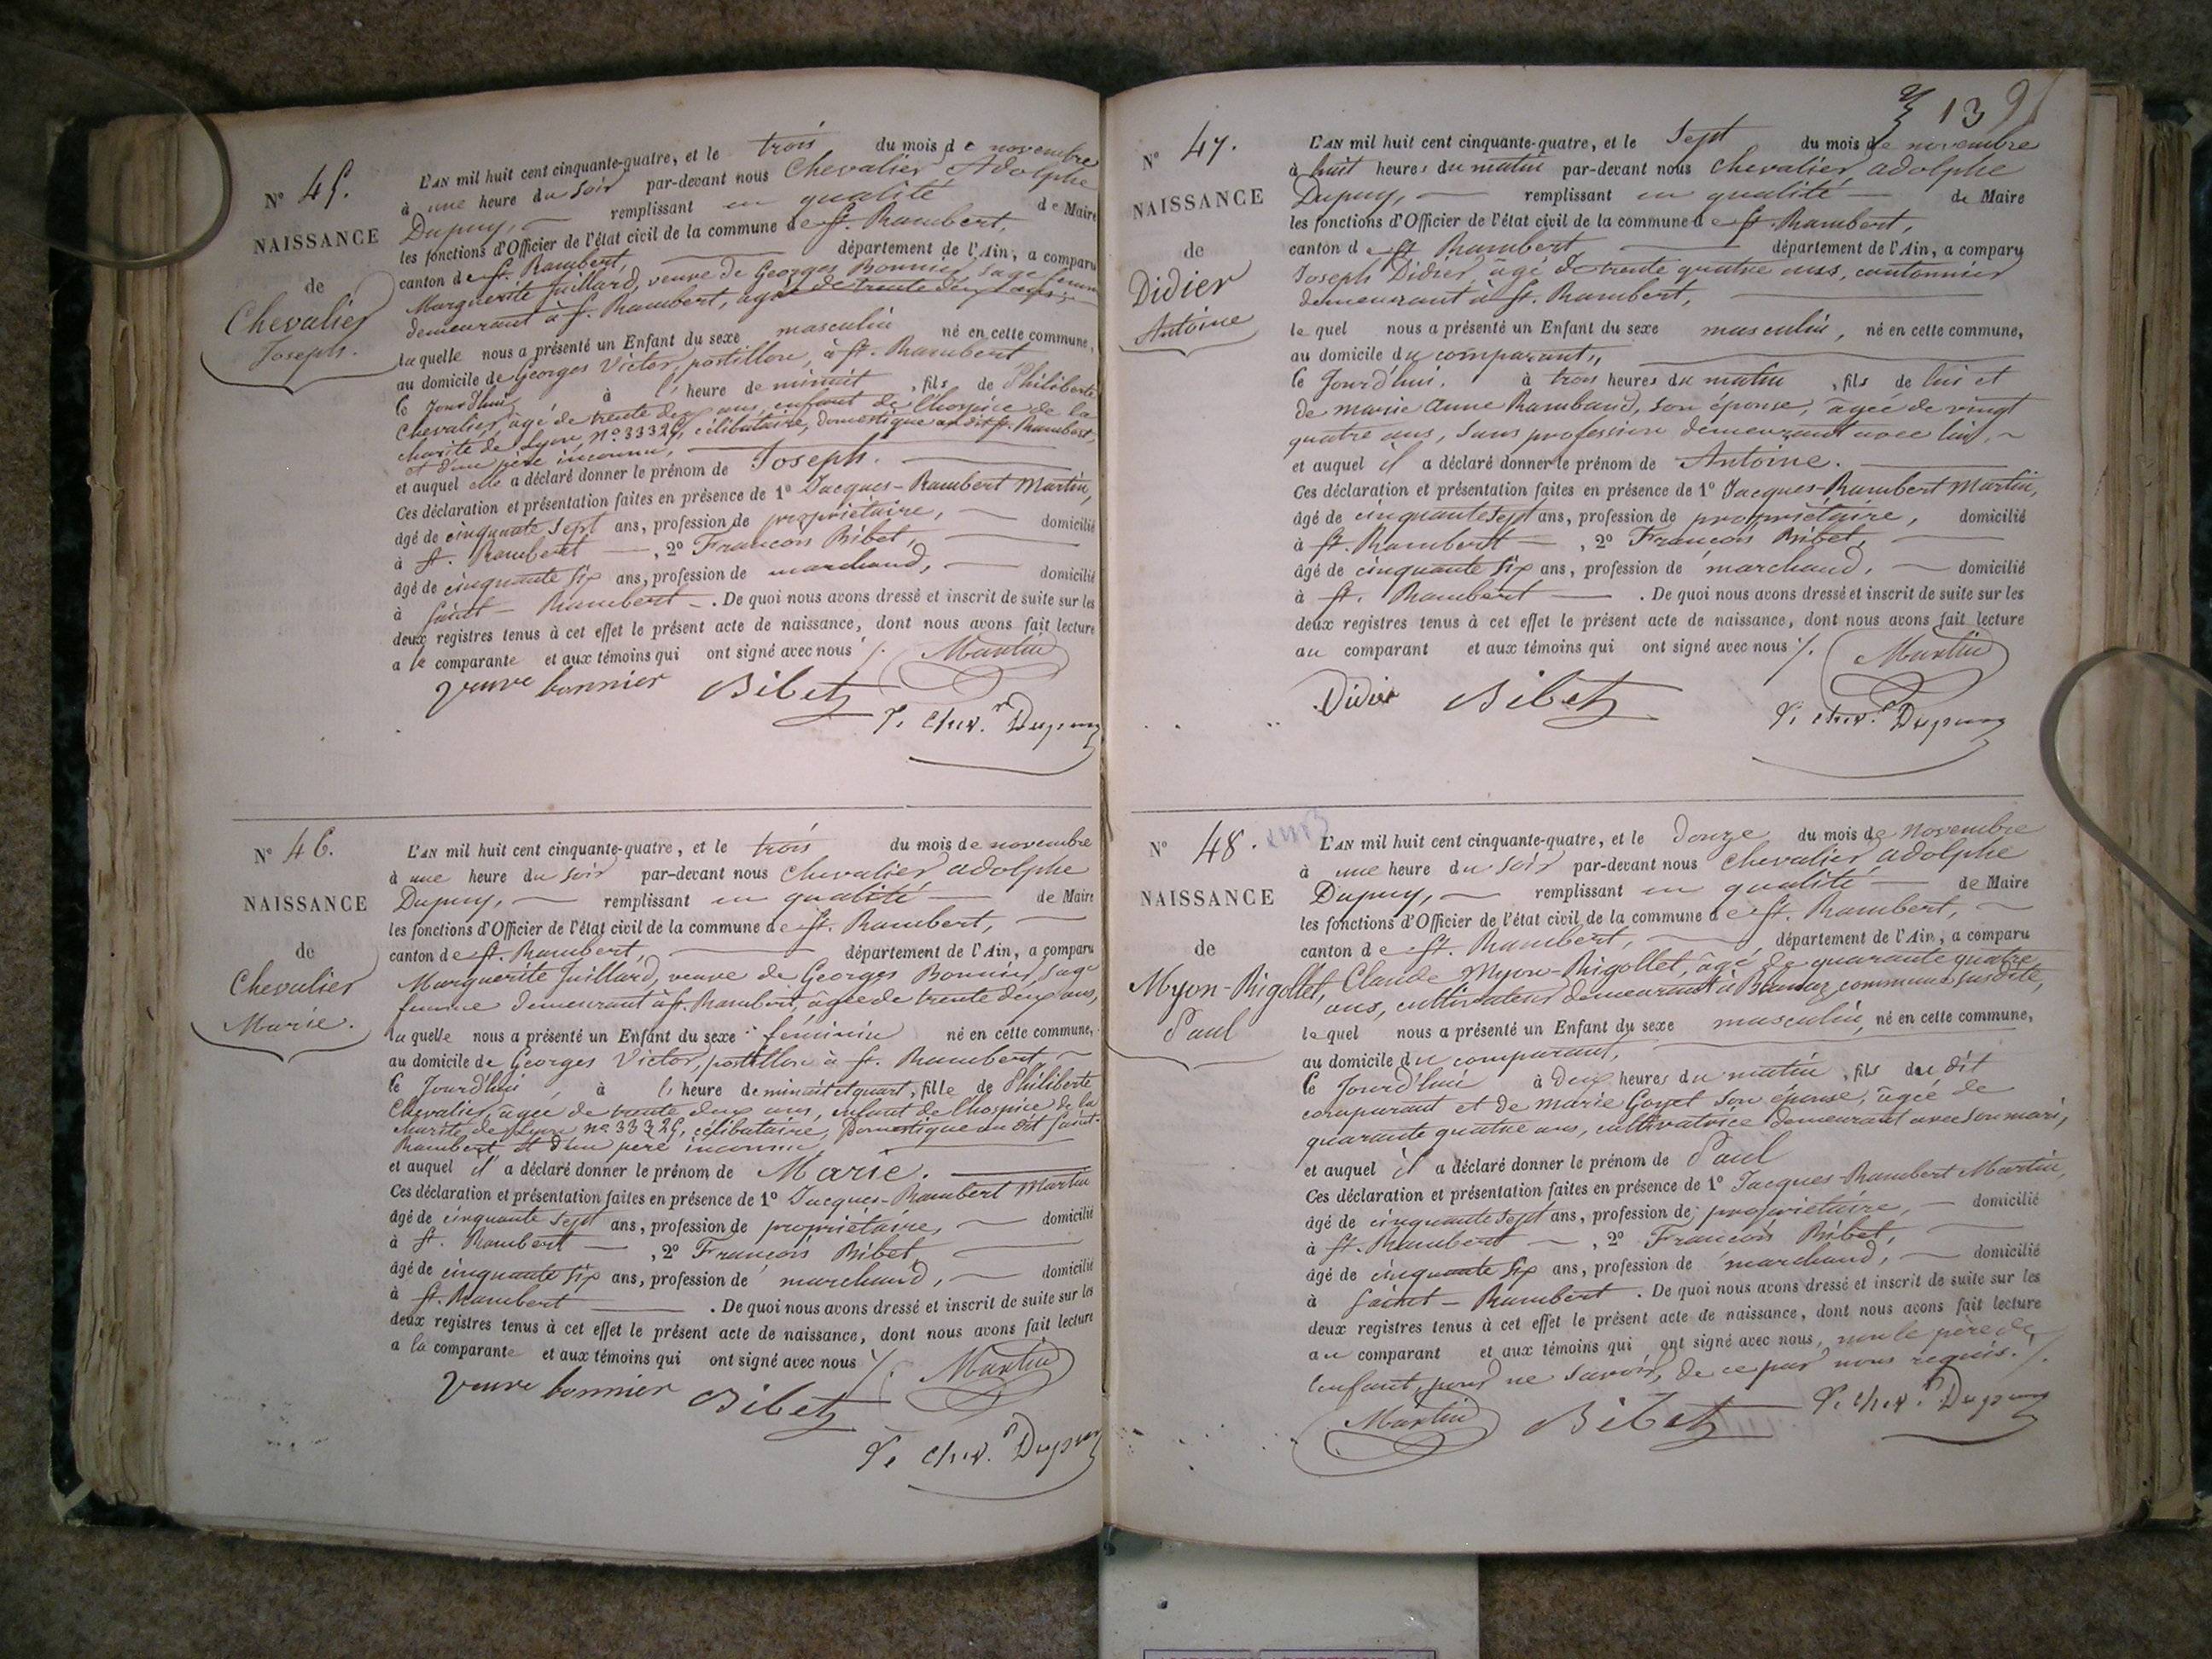 N° 45.
NAISSANCE
de
Chevalier
Joseph.
L'AN mil huit cent cinquante-quatre, et le trois du mois de novembre
à une heure du soir par-devant nous Chevalier Adolphe
Dupuy, remplissant en qualité de Maire
les fonctions d'Officier de l'état civil de la commune de St. Rambert,
canton de St. Rambert, département de l'Ain, a comparu
Marguerite Juillard, veuve de Georges Bonnier, sage femme
demeurant à St. Rambert, agée de trente deux ans,
laquelle nous a présenté un Enfant du sexe masculin né en cette commune,
au domicile de Georges Victor, postillon, à St. Rambert
le Jourd'hui, à l' heure de minuit, fils de Philiberte
Chevalier, âgé de trente deux ans, enfant de l'hospice de la
charité de Lyon, n° 33325, célibataire, domestique au dit St. Rambert,
et d'un père inconnu,
et auquel elle a déclaré donner le prénom de Joseph.
Ces déclaration et présentation faites en présence de 1° Jacques-Rambert Martin,
âgé de cinquante sept ans, profession de propriétaire, domicilié
à St. Rambert, 2° François Bibet,
âgé de cinquante six ans, profession de marchand, domicilié
à Saint-Rambert. De quoi nous avons dressé et inscrit de suite sur les
deux registres tenus à cet effet le présent acte de naissance, dont nous avons fait lecture
a la comparante et aux témoins qui ont signé avec nous ./. Martin
veuve bonnier Bibet
Dupuy
N° 46.
NAISSANCE
de
Chevalier
Marie.
L'AN mil huit cent cinquante-quatre, et le trois du mois de novembre
à une heure du soir par-devant nous Chevalier adolphe
Dupuy, remplissant en qualité de Maire
les fonctions d'Officier de l'état civil de la commune de St. Rambert,
canton de St. Rambert, département de l'Ain, a comparu
Marguerite Juillard, veuve de Georges Bonnier, sage
femme demeurant à St. Rambert, âgée de trente deux ans,
laquelle nous a présenté un Enfant du sexe féminin né en cette commune,
au domicile de Georges Victor, postillon à St. Rambert
le Jourd'hui, à l' heure de minuit et quart, fille de Philiberte
Chevalier, âgée de trente deux ans, enfant de l'hospice de la
charité de Lyon n° 33325, célibataire, Domestique au dit Saint-
Rambert, et d'un père inconnu
et auquel il a déclaré donner le prénom de Marie.
Ces déclaration et présentation faites en présence de 1° Jacques-Rambert Martin
âgé de cinquante sept ans, profession de propriétaire, domicilié
à St. Rambert, 2° François Bibet,
âgé de cinquante six ans, profession de marchand, domicilié
à St. Rambert. De quoi nous avons dressé et inscrit de suite sur les
deux registres tenus à cet effet le présent acte de naissance, dont nous avons fait lecture
a la comparante et aux témoins qui ont signé avec nous ./. Martin
veuve bonnier Bibet
Chev.r Dupuy
13
N° 47.
NAISSANCE
de
Didier
Antoine
L'AN mil huit cent cinquante-quatre, et le Sept du mois de novembre
à huit heures du matin par-devant nous Chevalier adolphe
Dupuy, remplissant en qualité de Maire
les fonctions d'Officier de l'état civil de la commune de St. Rambert,
canton de St. Rambert, département de l'Ain, a comparu
Joseph Didier, âgé de trente quatre ans, cantonnier
demeurant à St. Rambert,
lequel nous a présenté un Enfant du sexe masculin, né en cette commune,
au domicile du comparant,,
le Jourd'hui. à trois heures du matin, fils de lui et
de marie Anne Rambaud, son épouse, âgée de vingt
quatre ans, sans profession demeurant avec lui,
et auquel il a déclaré donner le prénom de Antoine.
Ces déclaration et présentation faites en présence de 1° Jacques-Rambert Martin,
âgé de cinquante sept ans, profession de propriétaire, domicilié
à St. Rambert, 2° François Bibet,
âgé de cinquante six ans, profession de marchand, domicilié
à St. Rambert. De quoi nous avons dressé et inscrit de suite sur les
deux registres tenus à cet effet le présent acte de naissance, dont nous avons fait lecture
au comparant et aux témoins qui ont signé avec nous ./. Martin
Didier Bibet Chev.r Dupuy
N° 48.
NAISSANCE
de
Myon-Rigollet,
Paul
L'AN mil huit cent cinquante-quatre, et le Douze du mois de Novembre
à une heure du soir par-devant nous Chevalier adolphe
Dupuy, remplissant en qualité de Maire
les fonctions d'Officier de l'état civil de la commune de St. Rambert,
canton de St. Rambert, département de l'Ain, a comparu
Claude Myon-Rigollet, âgé de quarante quatre
ans, cultivateur demeurant à commune susdite,
lequel nous a présenté un Enfant du sexe masculin, né en cette commune,
au domicile du comparant,
le Jourd'hui à deux heures du matin, fils du dit
comparant et de marie Goyet son épouse, âgée de
quarante quatre ans, cultivatrice demeurant avec son mari,
et auquel il a déclaré donner le prénom de Paul
Ces déclaration et présentation faites en présence de 1° Jacques-Rambert Martin,
âgé de cinquante sept ans, profession de propriétaire, domicilié
à St. Rambert, 2° François Bibet,
âgé de cinquante six ans, profession de marchand, domicilié
à Saint-Rambert. De quoi nous avons dressé et inscrit de suite sur les
deux registres tenus à cet effet le présent acte de naissance, dont nous avons fait lecture
au comparant et aux témoins qui ont signé avec nous, non le père de
l'enfant, pour ne savoir, de ce par nous requis. /.
Martin Bibet Chev.r Dupuy